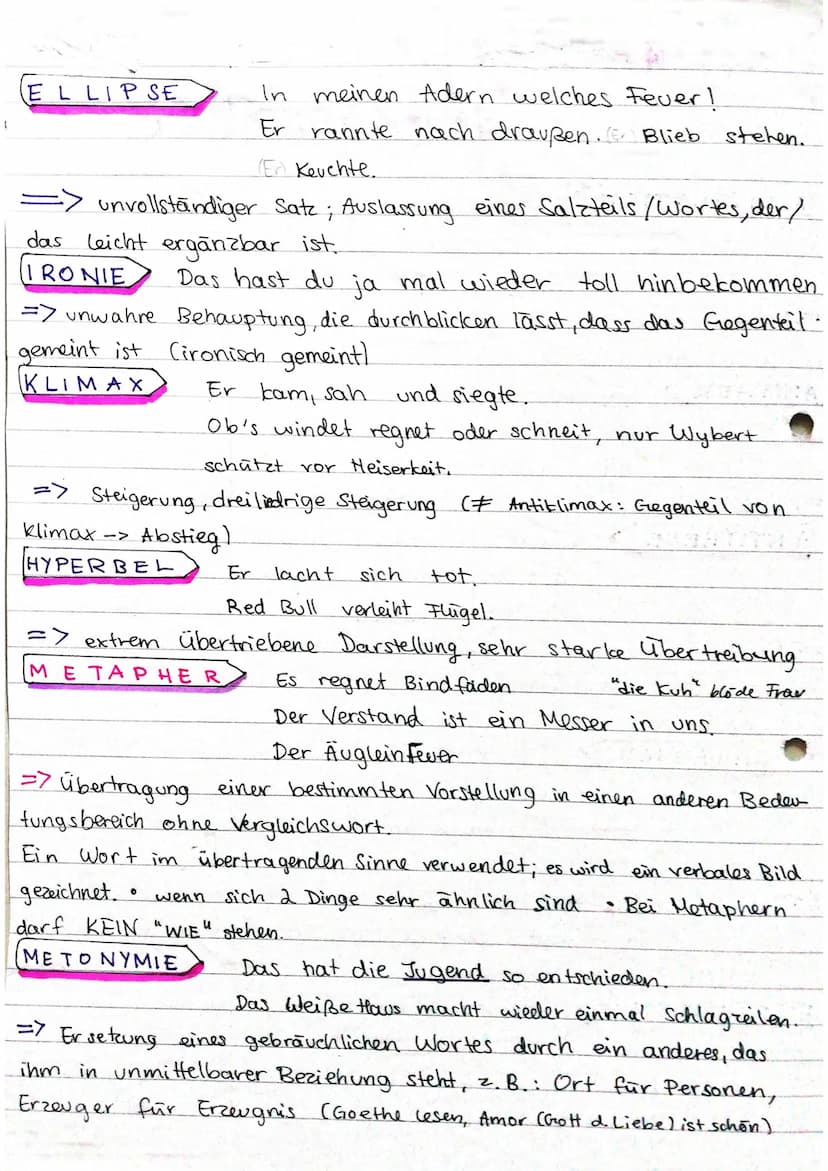 ELLIPSE In meinen Adern welches Feuer!
Er rannte nach draußen. (Er) Blieb stehen.
(Er) Keuchte.
=> unvollständiger Satz; Auslassung eines Satzteils/Wortes, der/
das leicht ergänzbar ist.
IRONIE Das hast du ja mal wieder toll hinbekommen
=> unwahre Behauptung, die durchblicken lässt, dass das Gegenteil
gemeint ist (ironisch gemeint)
KLIMAX Er kam, sah und siegte.
Ob's windet regnet oder schneit, nur Wybert
schützt vor Heiserkeit.
=> Steigerung, dreiliedrige Steigerung (≠ Antiklimax: Gegenteil von
Klimax -> Abstieg)
HYPERBEL Er lacht sich tot.
Red Bull verleiht Flügel.
=> extrem übertriebene Darstellung, sehr starke Übertreibung
METAPHER Es regnet Bindfäden "die Kuh" blöde Frau
Der Verstand ist ein Messer in uns.
Der Äuglein Feuer
=> Übertragung einer bestimmten Vorstellung in einen anderen Bedeu-
tungsbereich ohne Vergleichswort.
Ein Wort im übertragenden Sinne verwendet; es wird ein verbales Bild
gezeichnet. • wenn sich 2 Dinge sehr ähnlich sind • Bei Metaphern
darf KEIN "WIE" stehen.
METONYMIE Das hat die Jugend so entschieden.
Das Weiße Haus macht wieder einmal Schlagzeilen.
=> Ersetzung eines gebräuchlichen Wortes durch ein anderes, das
ihm in unmittelbarer Beziehung steht, z.B.: Ort für Personen,
Erzeuger für Erzeugnis (Goethe lesen, Amor (Gott d. Liebe) ist schön)